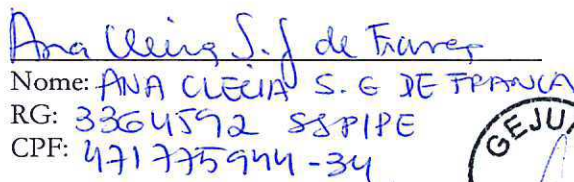 Ana Cleine S. G de França
Nome: ANA CLECIA S. G DE FRANCA
RG: 3364592 SSP/PE
CPF: 471775944-34
GEJU